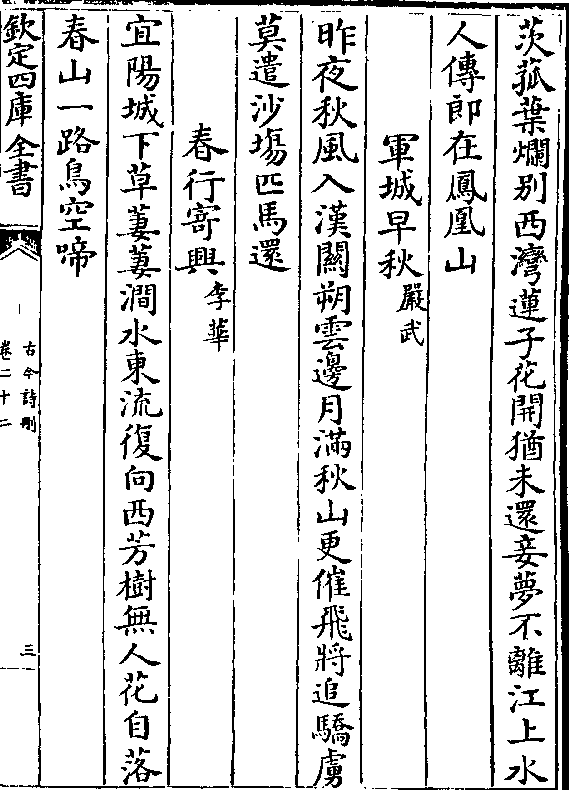 茨菰葉爛別西灣蓮子花開猶未還妾夢不離江上水
人傳郎在鳳凰山
軍城早秋嚴武
昨夜秋風入漢關朔雲邊月滿秋山更催飛將追驕虜
莫遣沙塲匹馬還
春行寄興李華
宜陽城下草萋萋澗水東流復向西芳樹無人花自落
春山一路鳥空啼
欽定四庫全書
古今詩刪
卷二十二
三